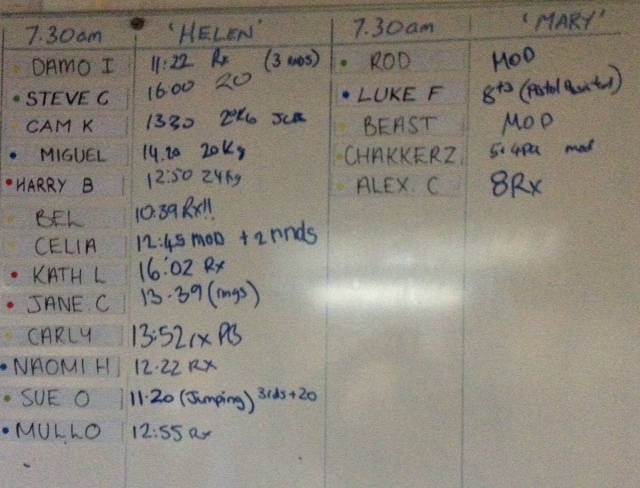 7.30am 'HELEN' 7.30am 'MARY'
DAMO I 11:22 Rx (3 rnds) ROD MOD
STEVE C 16:00 20 LUKE F 8
CAM K 1330 20KG BEAST MOD
MIGUEL 14.20 20Kg CHAKKERZ mod
HARRY B 12:50 24Kg ALEX. C 8Rx
BEL 10:39 Rx!!
CELIA 12:45 MOD + 2 rnds
KATH L 16:02 Rx
JANE. C 13.39 (rings)
CARLY 13:52 rx PB
NAOMI H 12.22 RX
SUE O 11.20 (Jumping) 3rds+20
MULLO 12:55 Rx